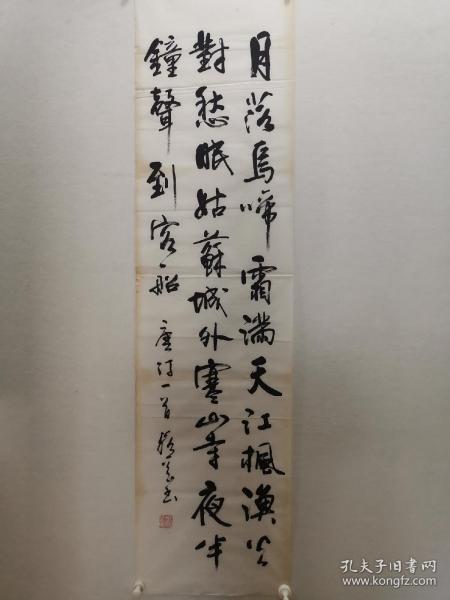 月落烏啼霜滿天江楓漁火
對愁眠姑蘇城外寒山寺夜半
鐘聲到客船 唐詩一首 書
孔夫子旧书网
www.kongfz.com